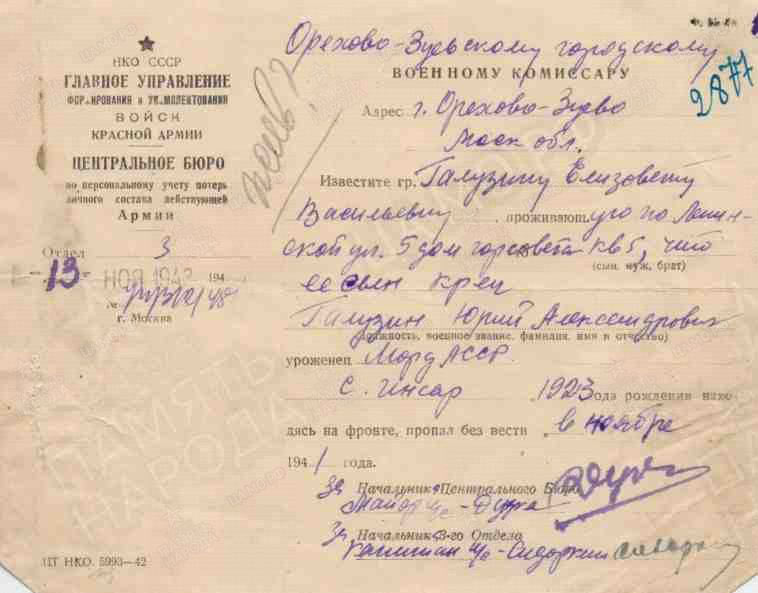 Орехово-Зуевскому городскому
ВОЕННОМУ КОМИССАРУ
2877
Адрес г. Орехово-Зуево
Моск обл.
НКО СССР
ГЛАВНОЕ УПРАВЛЕНИЕ
ФОРМИРОВАНИЯ и УКОМПЛЕКТОВАНИЯ
ВОЙСК
КРАСНОЙ АРМИИ
ЦЕНТРАЛЬНОЕ БЮРО
по персональному учету потерь
личного состава действующей
Армии
Отдел 3
13 НОЯ 1943 194
№
г. Москва
Известите гр. Галузину Елизовету
Васильевну проживающ угю по Ленин-
ской ул. 5 дом горсовета кв 5, что
(сын, муж, брат)
ее сын крец
Галузин Юрий Александрович
(должность, военное звание, фамилия, имя и отчество)
уроженец Морд АССР
с. Инсар 1923 года рождения нахо-
дясь на фронте, пропал без вести в ноябре
1941 года.
Зд Начальник Центрального Бюро
Майор
Зд Начальник 3-го Отдела
Капитан Сидоркин
ЦТ НКО. 5993—42
ПАМЯТЬ НАРОДА